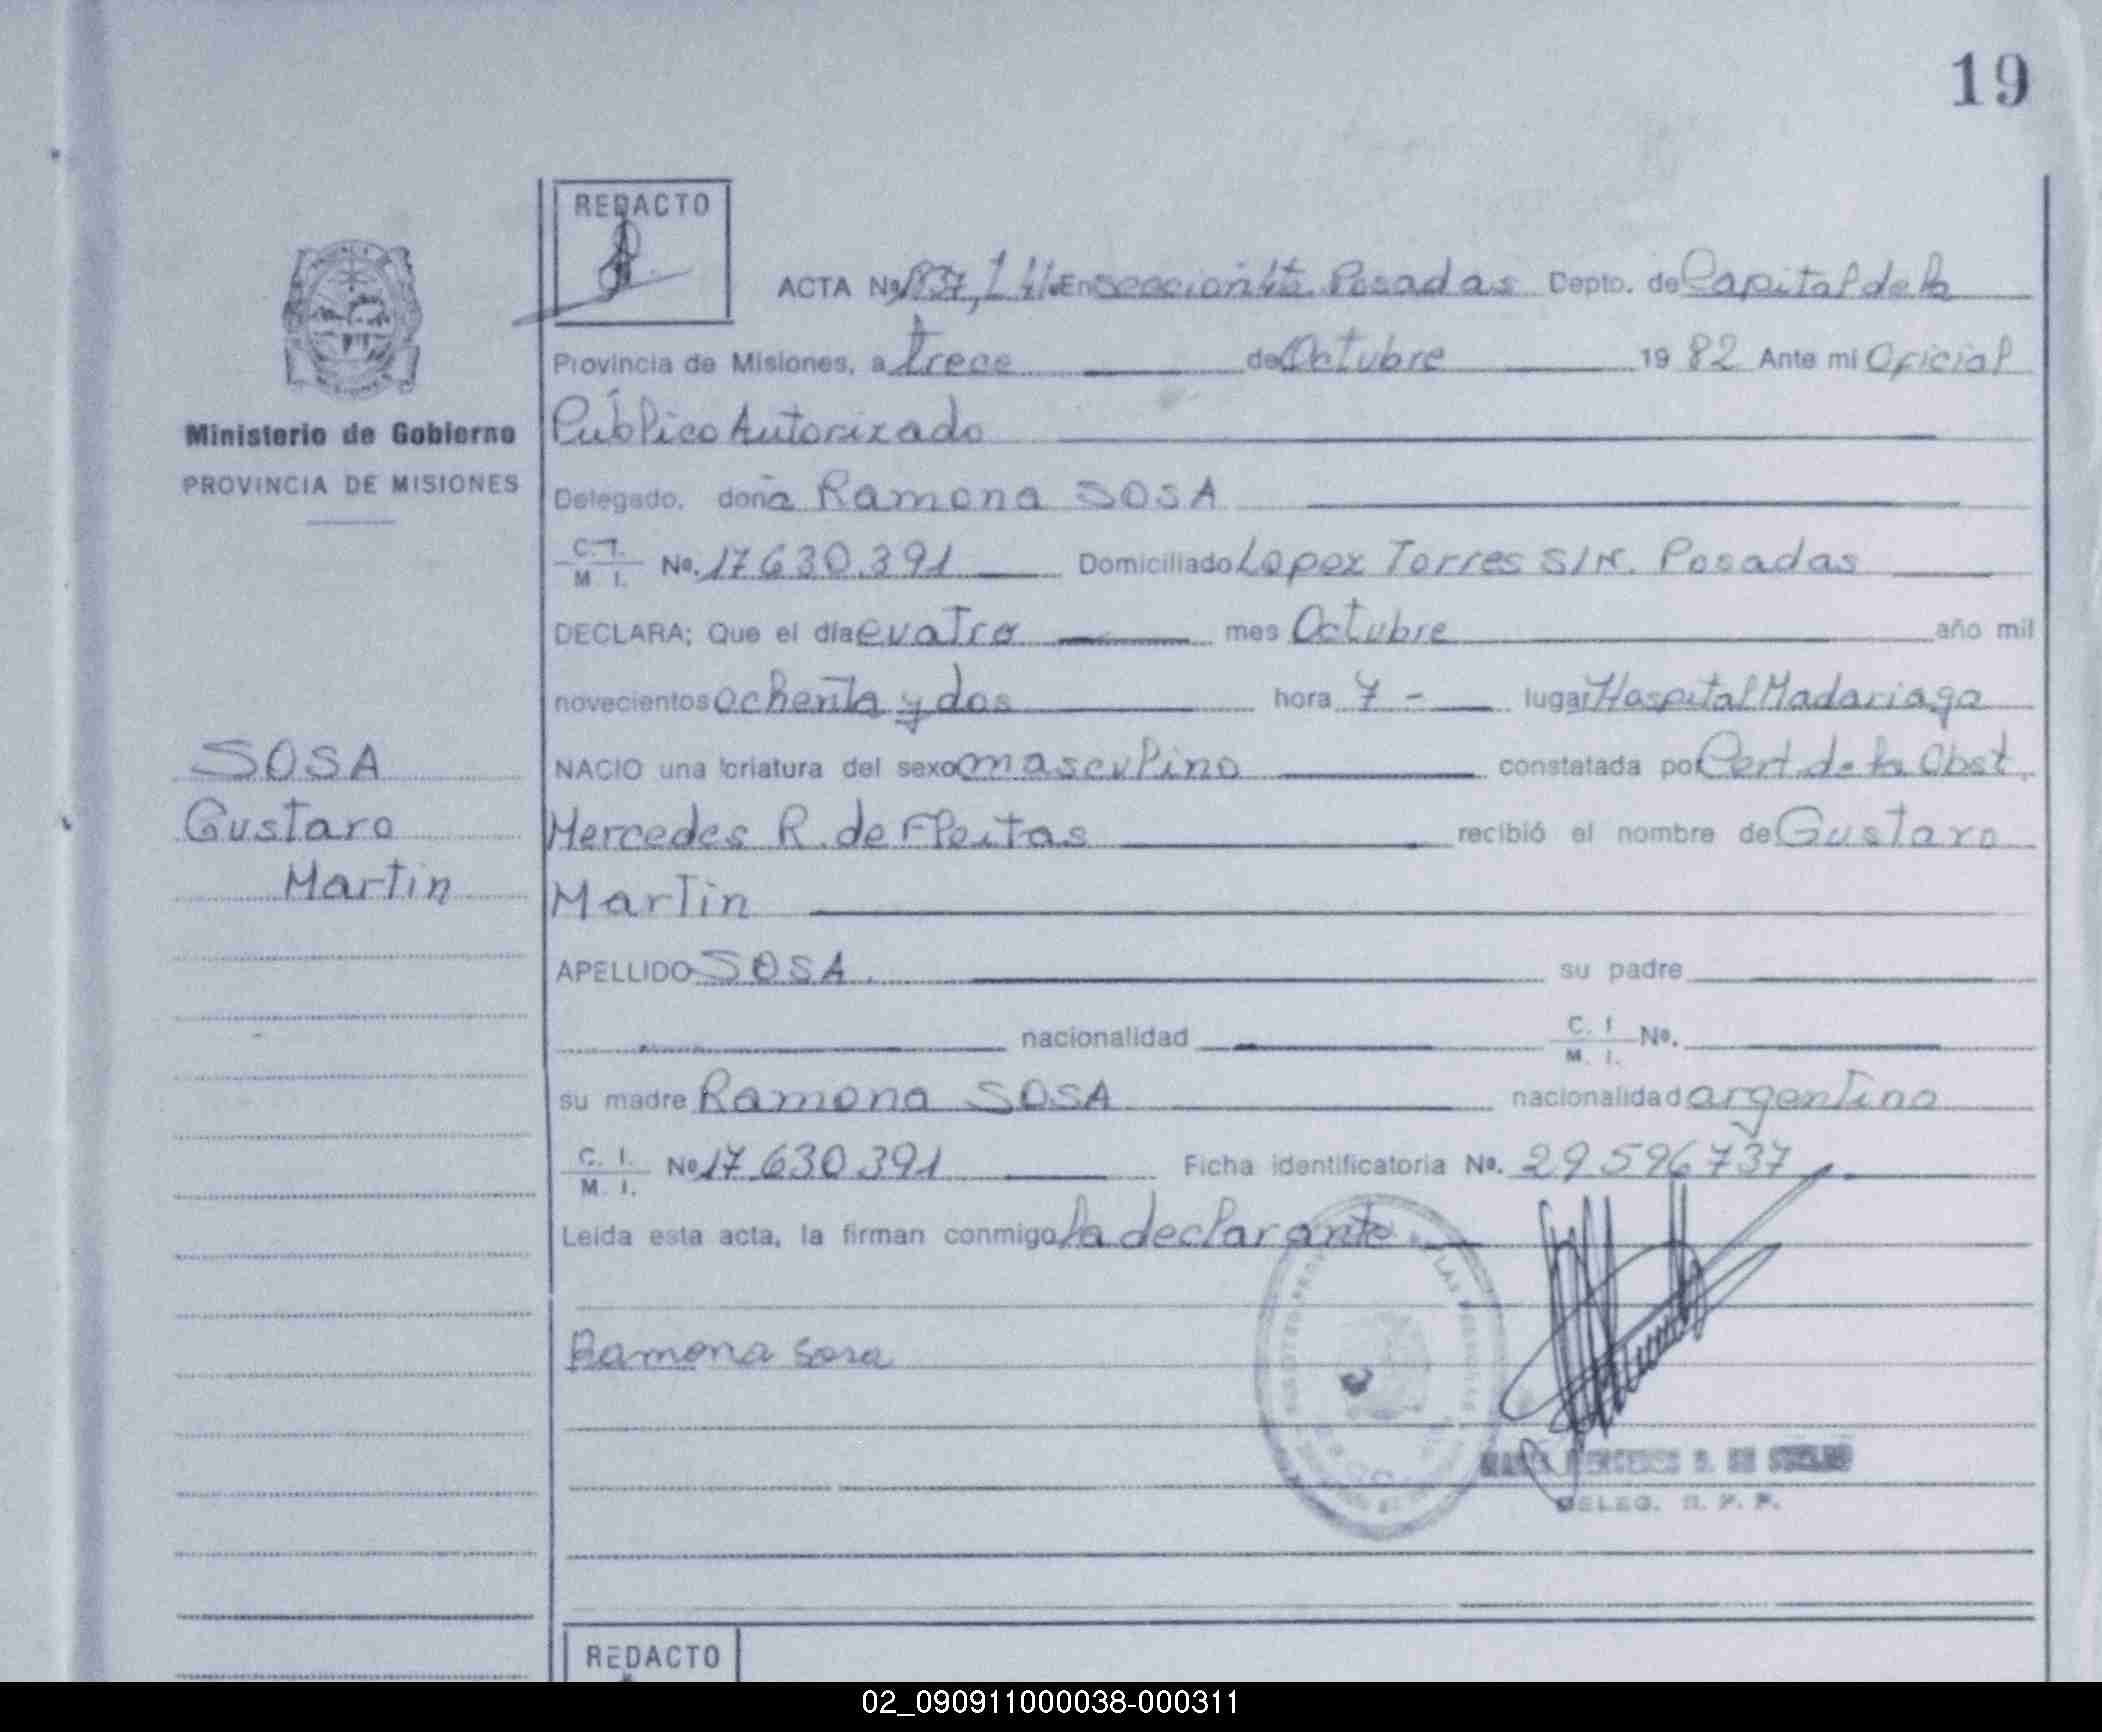 19
REDACTO
ACTA Nº En sección 4ta Posadas Depto. de Capital de la
Provincia de Misiones, a trece de Octubre 1982 Ante mi Oficial
Público Autorizado
Ministerio de Gobierno
PROVINCIA DE MISIONES
Delegado, doña Ramona SOSA
C. I. M. I. No. 17630.391 Domiciliado Lopez Torres S/N. Posadas
DECLARA; Que el día cuatro mes Octubre año mil
novecientos ochenta y dos hora 7 - lugar Hospital Madariaga
SOSA
NACIO una criatura del sexo masculino constatada por Cert. de la Obst.
Gustavo
Mercedes R. de Fleitas recibió el nombre de Gustavo
Martin
Martin
APELLIDO SOSA. su padre
nacionalidad C. I. M. I. Nº.
su madre Ramona SOSA nacionalidad argentina
C. I. M. I. Nº 17.630.391 Ficha identificatoria No. 29596737
Leída esta acta, la firman conmigo la declarante
Ramona Sosa
DELEG. R. P. P.
REDACTO
02_090911000038-000311